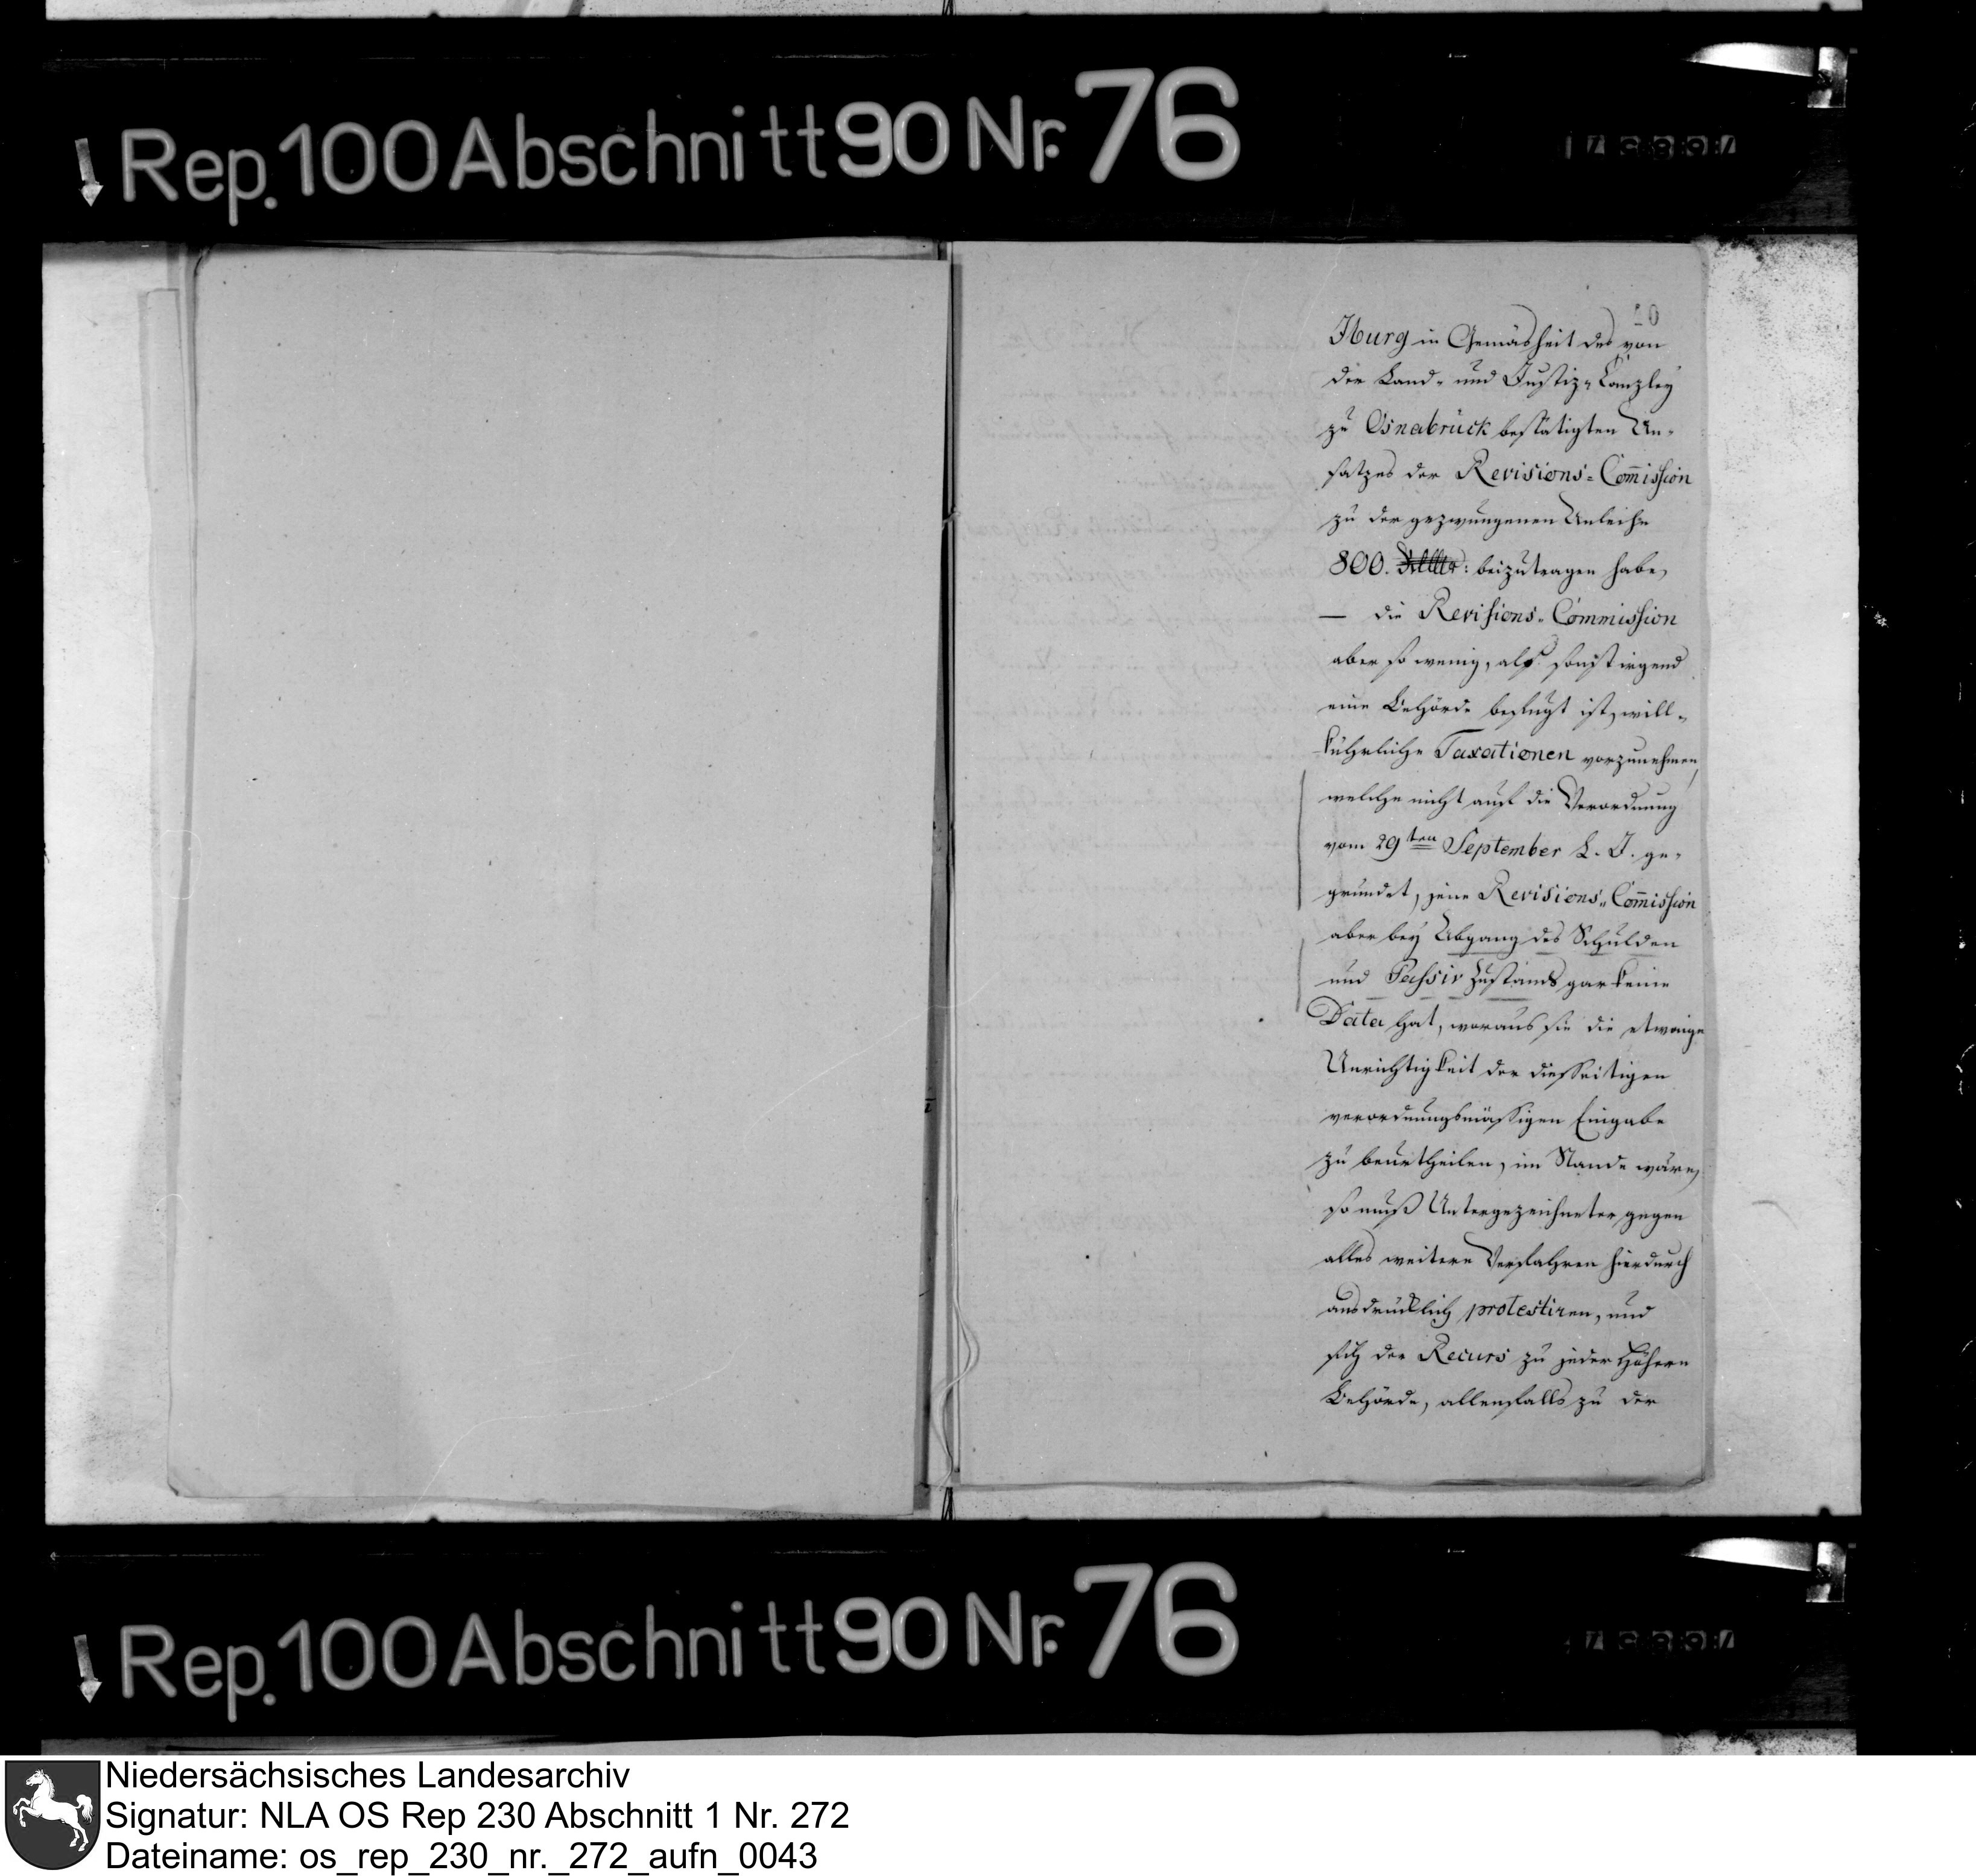 Rep. 100 Abschnitt 90 Nr. 76
20
Iburg in Gemäsheit des von
der Land- und Justiz-Canzley
zu Osnabrück bestätigten An-
satzes der Revisions-Com̄ission
zu der gezwungenen Anleihe
800. beizutragen habe,
— die Revisions-Commission
aber so wenig, als sonst irgend
eine Behörde befugt ist, will-
kührliche Taxationen vorzunehmen,
welche nicht auf die Verordnung
vom 29ten September l. J. ge-
gründet, jene Revisions-Com̄ission
aber bey Abgang des Schulden
und Passiv Zustands gar keine
Data hat, woraus sie die etwaige
Unrichtigkeit der diesseitigen
verordnungsmässigen Eingabe
zu beurtheilen, im Stande wäre,
so muß Untergezeichneter gegen
alles weitere Verfahren hierdurch
ausdrücklich protestiren, und
sich der Recurs zu jeder Höhern
Behörde, allenfalls zu der
Rep. 100 Abschnitt 90 Nr. 76
Niedersächsisches Landesarchiv
Signatur: NLA OS Rep 230 Abschnitt 1 Nr. 272
Dateiname: os_rep_230_nr._272_aufn_0043